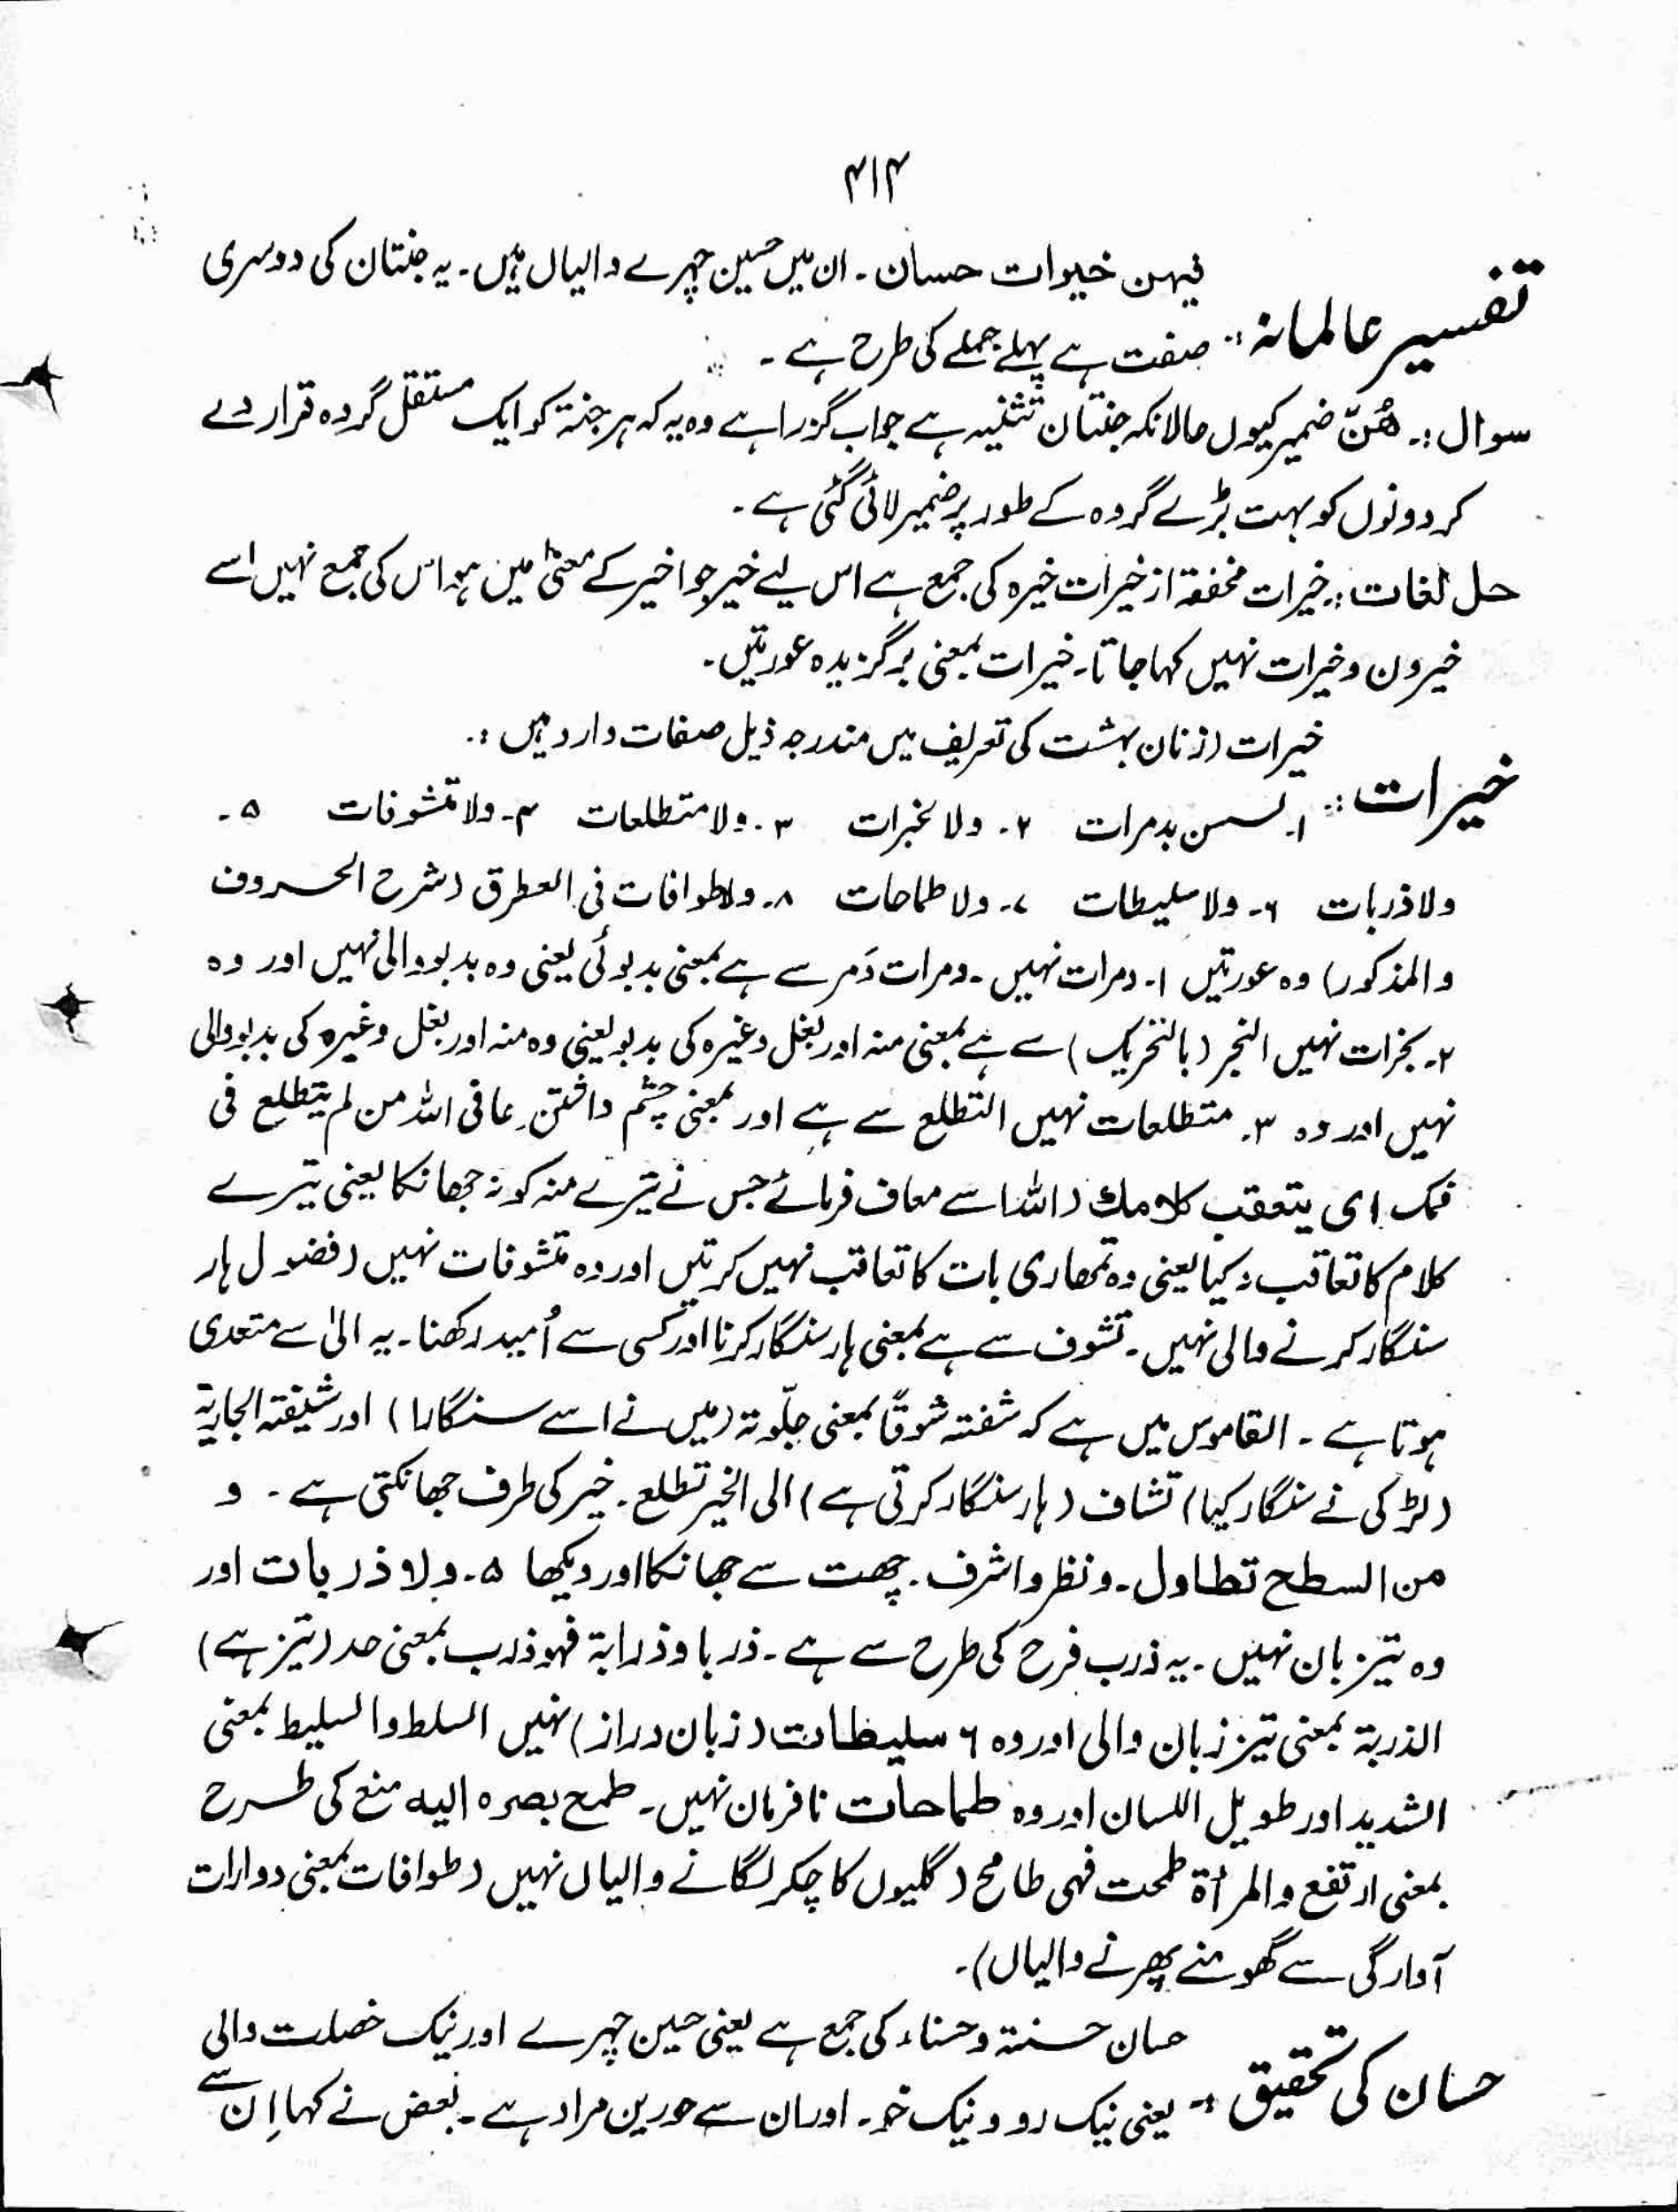 ۴۱۴
فیہن خیرات حسان۔ ان میں حسین چہرے والیاں ہیں۔ یہ جنتان کی دوسری
تفسیر عالمانہ :۔
صفت ہے پہلے جملے کی طرح ہے۔
سوال :۔ ھُنّ ضمیر کیوں حالانکہ جنتان تثنیہ ہے جواب گزرا ہے وہ یہ کہ ہر جنۃ کو ایک مستقل گروہ قرار دے
کر دونوں کو بہت بڑے گروہ کے طور پر ضمیر لائی گئی ہے۔
حل لغات :۔ خیرات مخففۃ از خیرات خیرہ کی جمع ہے اس لیے خیر جو اخیر کے معنیٰ میں ہو اس کی جمع نہیں اسے
خیرون و خیرات نہیں کہا جاتا۔ خیرات بمعنی برگزیدہ عورتیں۔
خیرات (زنان بہشت کی تعریف میں مندرجہ ذیل صفات وارد ہیں :۔
خیرات :۔
۱۔ لسن بدمرات ۲۔ ولا بخرات ۳۔ ولا متطلعات ۴۔ ولا تمشوفات ۵۔
ولا ذربات ۶۔ ولا سلیطات ۷۔ ولا طماحات ۸۔ ولا طوافات فی الطرق (شرح الحروف
والمذکور) وہ عورتیں ۱۔ دمرات نہیں۔ دمرات دَمر سے ہے بمعنی بدبوئی یعنی وہ بدبو والی نہیں اور وہ
۲۔ بخرات نہیں البخر (بالتحریک) سے ہے بمعنی منہ اور بغل وغیرہ کی بدبو یعنی وہ منہ اور بغل وغیرہ کی بدبو والی
نہیں اور وہ ۳۔ متطلعات نہیں التطلع سے ہے اور بمعنی چشم داشتن۔ عافی اللہ من لم یتطلع فی
فمک ای یتعقب کلامک (اللہ اسے معاف فرمائے جس نے تیرے منہ کو نہ جھانکا یعنی تیرے
کلام کا تعاقب نہ کیا یعنی وہ تمھاری بات کا تعاقب نہیں کرتیں اور وہ تمشوفات نہیں (فضول ہار
سنگار کرنے والی نہیں۔ تشوف سے ہے بمعنی ہار سنگار کرنا اور کسی سے اُمید رکھنا۔ یہ الیٰ سے متعدی
ہوتا ہے۔ القاموس میں ہے کہ شفتہ شوقًا بمعنی جلّوتہ (میں نے اسے سنگارا) اور شیفتہ الجاریۃ
(لڑکی نے سنگار کیا) تشاف (ہار سنگار کرتی ہے) الی الخیر تطلع۔ خیر کی طرف جھانکتی ہے۔ و
من السطح تطاول۔ ونظر واشرف۔ چھت سے جھانکا اور دیکھا ۵۔ ولا ذربات اور
وہ تیز بان نہیں۔ یہ ذرب فرح کی طرح سے ہے۔ ذربا وذرابۃ فہو ذرب بمعنی حد (تیز ہے)
الذربۃ بمعنی تیز زبان والی اور وہ ۶ سلیطات (زبان دراز) نہیں السلط والسلیط بمعنی
الشدید اور طویل اللسان اور وہ طماحات نافرمان نہیں۔ طمح بصرہ الیہ منع کی طرح
بمعنی ارتفع والمرأۃ طمحت فہی طامح (گلیوں کا چکر لگانے والیاں نہیں (طوافات بمعنی دوارات
آوارگی سے گھومنے پھرنے والیاں)۔
حسان حسنۃ وحسناء کی جمع ہے یعنی حسین چہرے اور نیک خصلت والی
حسان کی تحقیق :۔
یعنی نیک رو و نیک خو۔ اور ان سے حوریں مراد ہے۔ بعض نے کہا اِن سے